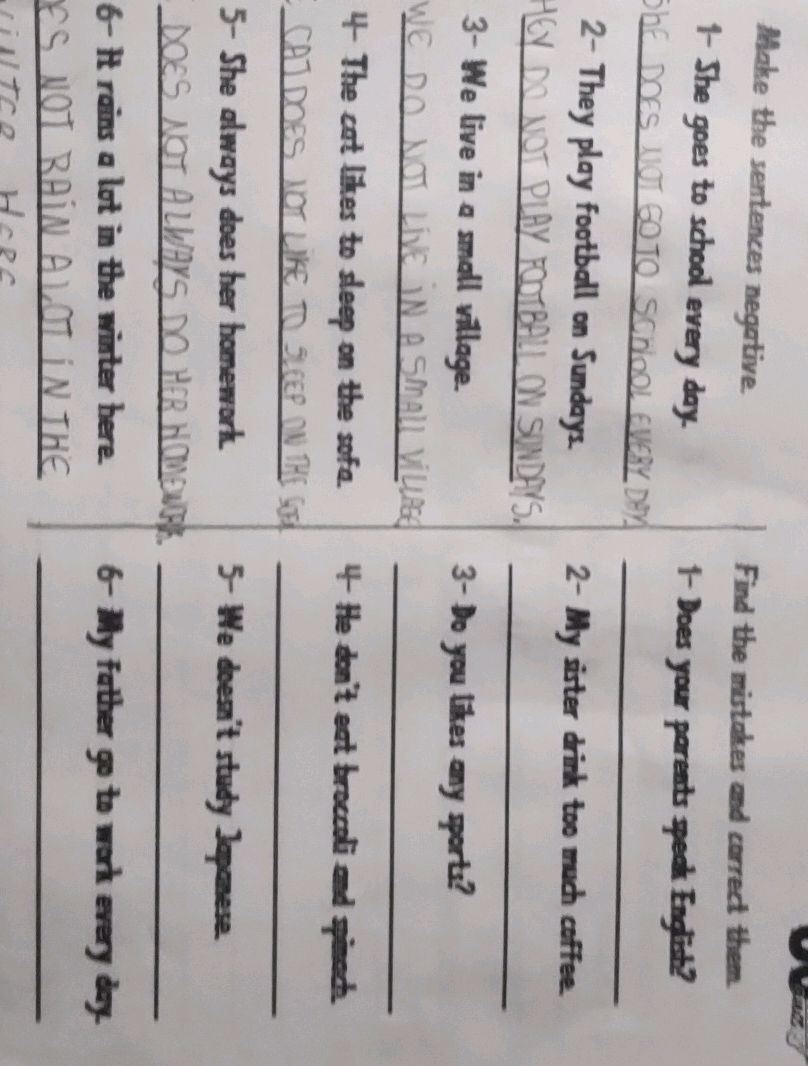 Make the sentences negative.
1- She goes to school every day.
SHE DOES NOT GO TO SCHOOL EVERY DAY
2- They play football on Sundays.
HEY DO NOT PLAY FOOTBALL ON SUNDAYS.
3- We live in a small village.
WE DO NOT LIVE IN A SMALL VILLAGE
4- The cat likes to sleep on the sofa.
CAT DOES NOT LIKE TO SLEEP ON THE SOFA
5- She always does her homework.
DOES NOT ALWAYS DO HER HOMEWORK.
6- It rains a lot in the winter here.
ES NOT RAIN A LOT IN THE
WINTER HERE
Find the mistakes and correct them.
1- Does your parents speak English?
2- My sister drink too much coffee.
3- Do you likes any sports?
4- He don't eat broccoli and spinach.
5- We doesn't study Japanese.
6- My father go to work every day.